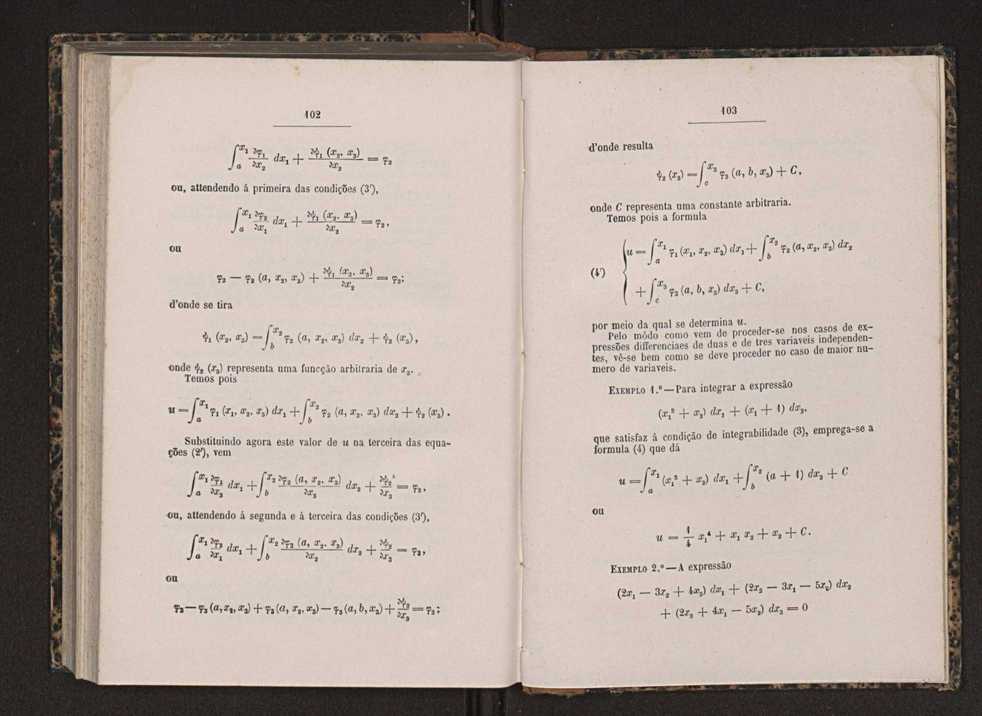 102
∫ₐ^{x₁} ∂φ₁/∂x₂ dx₁ + ∂ψ₁ (x₂, x₃)/∂x₂ = φ₂
ou, attendendo á primeira das condições (3'),
∫ₐ^{x₁} ∂φ₂/∂x₁ dx₁ + ∂ψ₁ (x₂, x₃)/∂x₂ = φ₂,
ou
φ₂ — φ₂ (a, x₂, x₃) + ∂ψ₁ (x₂, x₃)/∂x₂ = φ₂;
d'onde se tira
ψ₁ (x₂, x₃) = ∫_b^{x₂} φ₂ (a, x₂, x₃) dx₂ + ψ₂ (x₃),
onde ψ₂ (x₃) representa uma funcção arbitraria de x₃.
Temos pois
u = ∫ₐ^{x₁} φ₁ (x₁, x₂, x₃) dx₁ + ∫_b^{x₂} φ₂ (a, x₂, x₃) dx₂ + ψ₂ (x₃).
Substituindo agora este valor de u na terceira das equa-
ções (2'), vem
∫ₐ^{x₁} ∂φ₁/∂x₃ dx₁ + ∫_b^{x₂} ∂φ₂ (a, x₂, x₃)/∂x₃ dx₂ + ∂ψ₂/∂x₃ = φ₃,
ou, attendendo á segunda e á terceira das condições (3'),
∫ₐ^{x₁} ∂φ₃/∂x₁ dx₁ + ∫_b^{x₂} ∂φ₃ (a, x₂, x₃)/∂x₂ dx₂ + ∂ψ₂/∂x₃ = φ₃,
ou
φ₃ — φ₃ (a, x₂, x₃) + φ₃ (a, x₂, x₃) — φ₃ (a, b, x₃) + ∂ψ₂/∂x₃ = φ₃;
103
d'onde resulta
ψ₂ (x₃) = ∫_c^{x₃} φ₃ (a, b, x₃) + C,
onde C representa uma constante arbitraria.
Temos pois a formula
(4') { u = ∫ₐ^{x₁} φ₁ (x₁, x₂, x₃) dx₁ + ∫_b^{x₂} φ₂ (a, x₂, x₃) dx₂
+ ∫_c^{x₃} φ₃ (a, b, x₃) dx₃ + C,
por meio da qual se determina u.
Pelo módo como vem de proceder-se nos casos de ex-
pressões differenciaes de duas e de tres variaveis independen-
tes, vê-se bem como se deve proceder no caso de maior nu-
mero de variaveis.
EXEMPLO 1.º — Para integrar a expressão
(x₁³ + x₂) dx₁ + (x₁ + 1) dx₂,
que satisfaz á condição de integrabilidade (3), emprega-se a
formula (4) que dá
u = ∫ₐ^{x₁} (x₁³ + x₂) dx₁ + ∫_b^{x₂} (a + 1) dx₂ + C
ou
u = 1/4 x₁⁴ + x₁ x₂ + x₂ + C.
EXEMPLO 2.º — A expressão
(2x₁ — 3x₂ + 4x₃) dx₁ + (2x₂ — 3x₁ — 5x₃) dx₂
+ (2x₃ + 4x₁ — 5x₂) dx₃ = 0